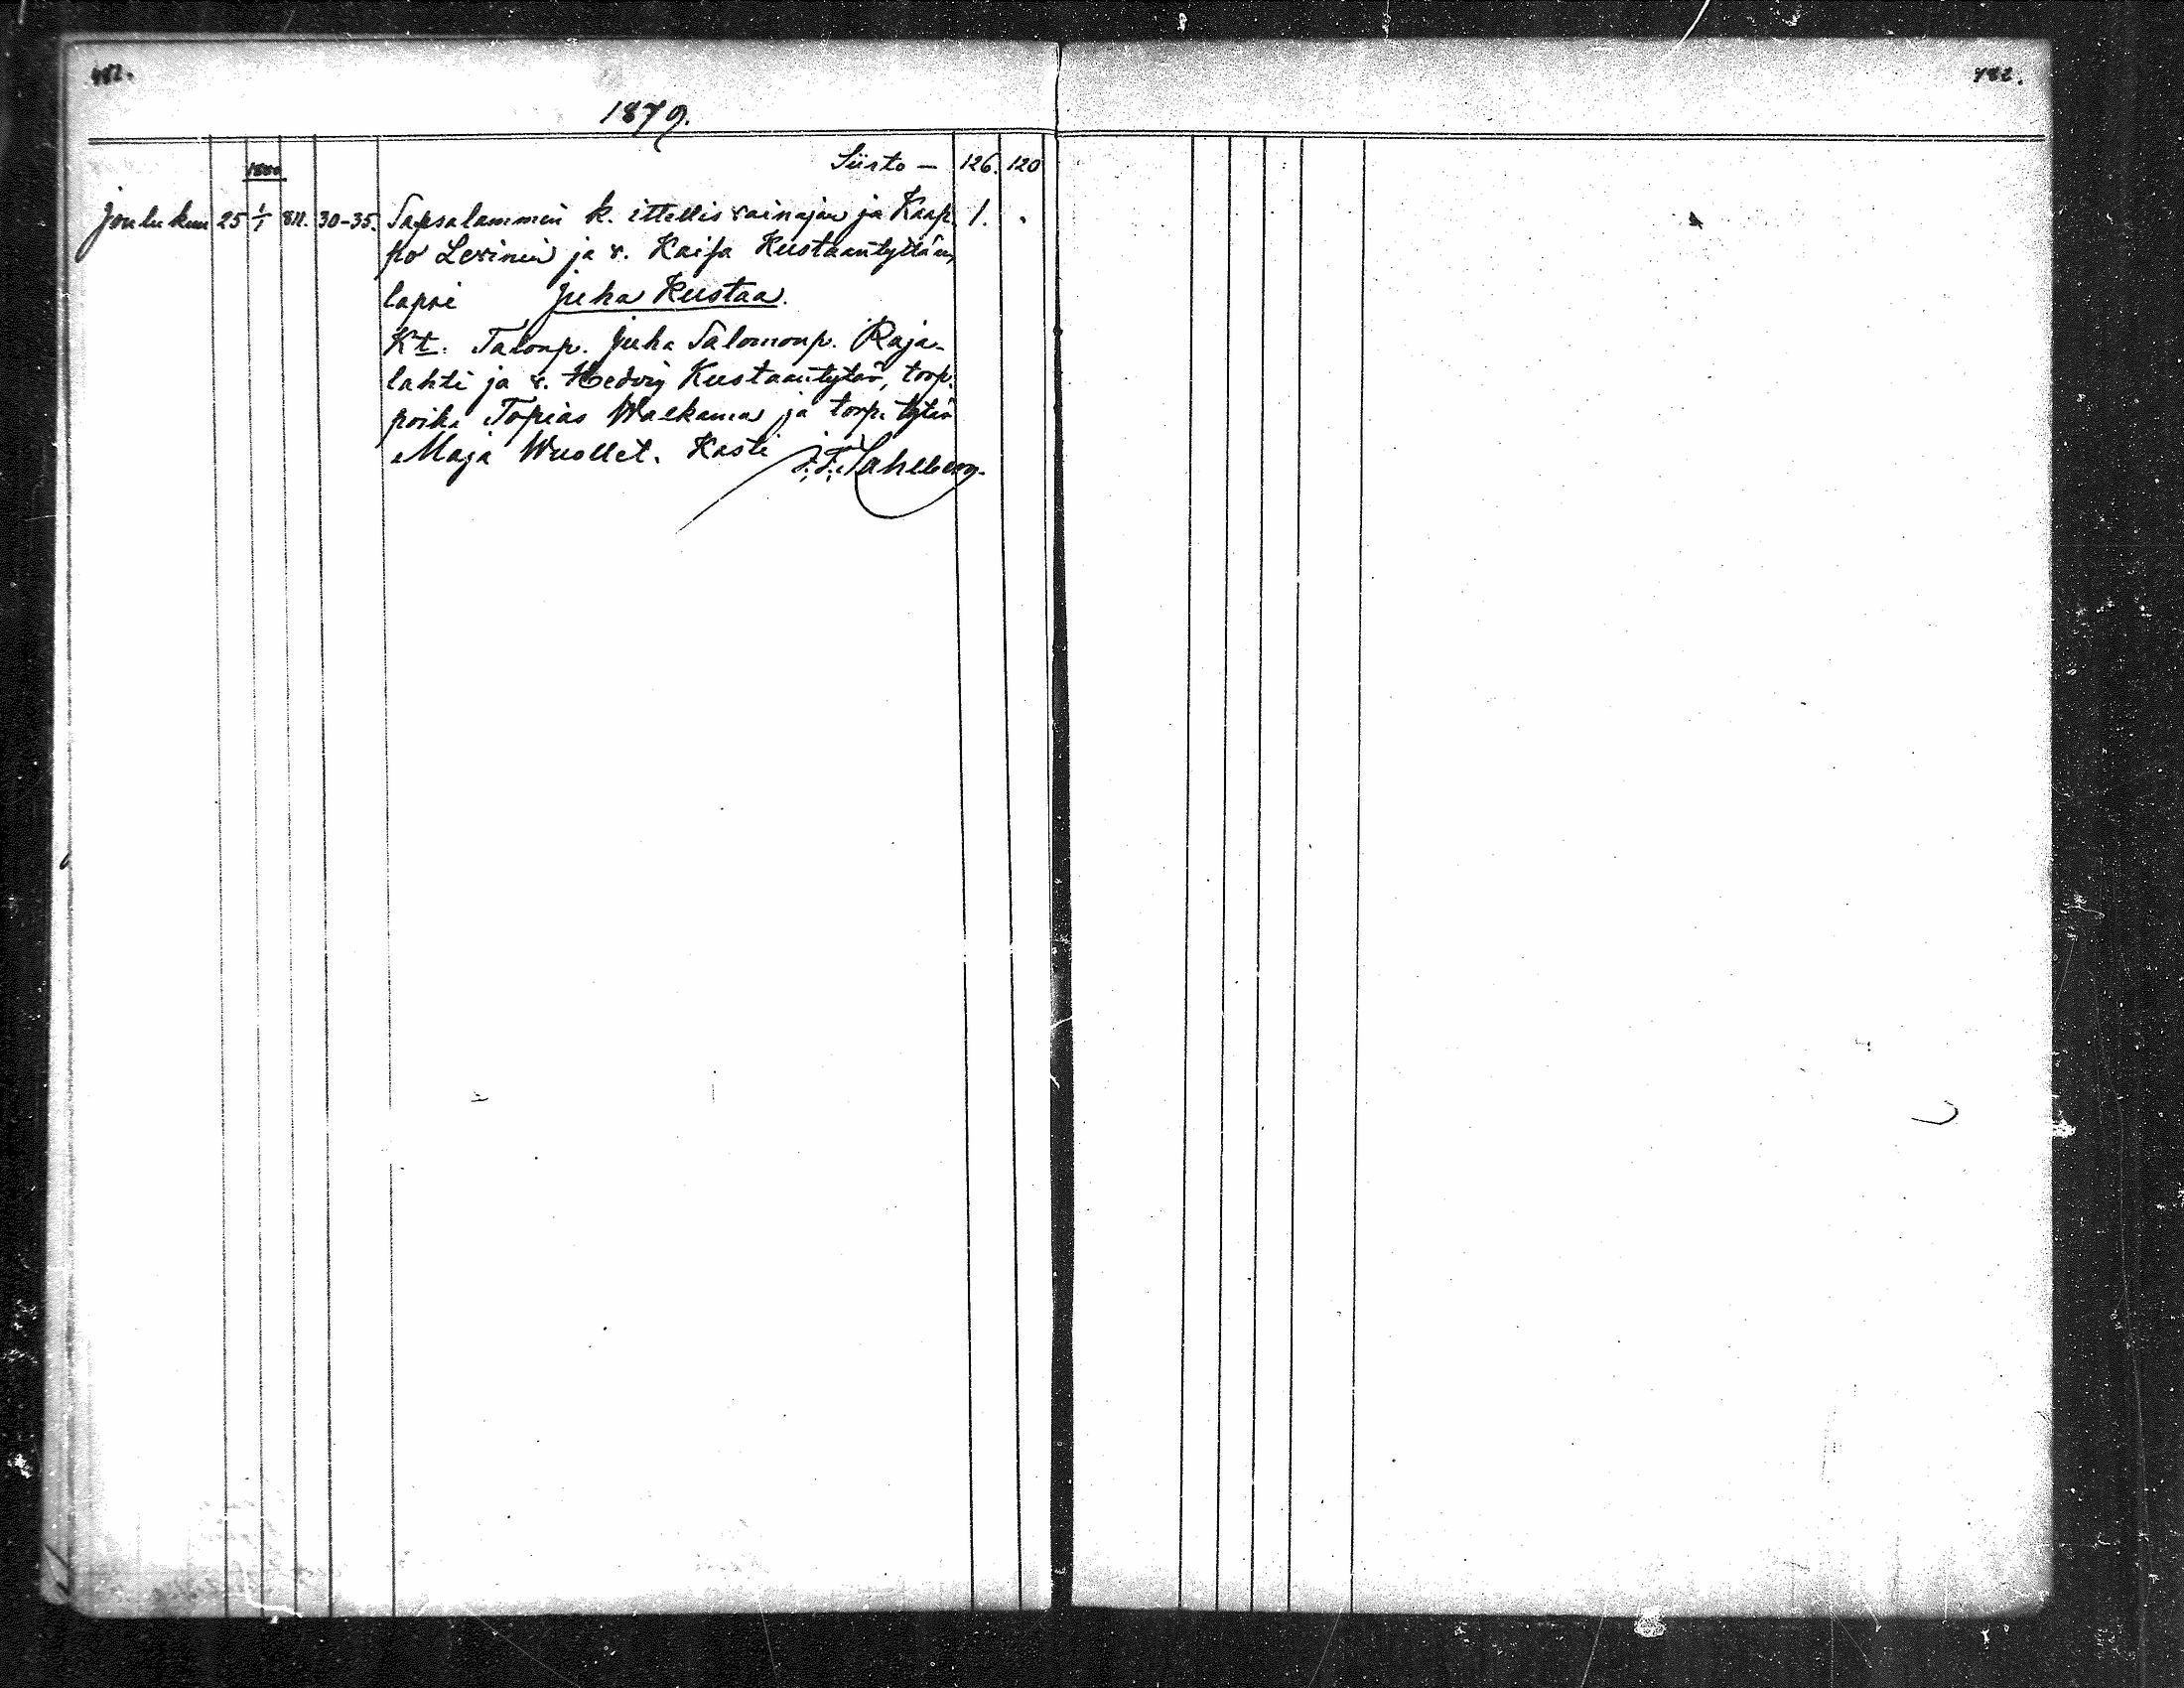 482.
482.
1879.
Siirto — 126. 120
1880
Joulukuu 25 1/1 811. 30-35. Sapsalammin k. ittellis vainajan ja Kaap- 1. .
po Levinin ja v. Kaisa Kustaantyttären
lapsi Juha Kustaa.
Kt. Talonp. Juha Salomonp. Raja-
lahti ja v. Hedvig Kustaantytär, torp.
poika Topias Walkama ja torp. tytär
Maja Wuollet. Kasti J. F. Sahlberg.